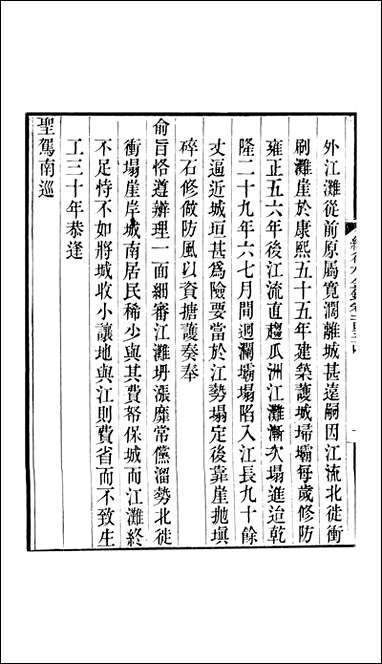 外江灘從前原屬寬濶離城甚遠嗣因江流北徙衝
刷灘崖於康熙五十五年建築護城埽壩每歲修防
雍正五六年後江流直趨瓜洲江灘漸次塌進迨乾
隆二十九年六七月間迴瀾壩塌陷入江長九十餘
丈逼近城垣甚爲險要當於江勢塌定後靠崖拋填
碎石修做防風以資搪護奏奉
俞旨恪遵辦理一面細審江灘坍漲靡常儻溜勢北徙
衝塌崖岸城南居民稀少與其費帑保城而江灘終
不足恃不如將城收小讓地與江則費省而不致生
工三十年恭逢
聖駕南巡